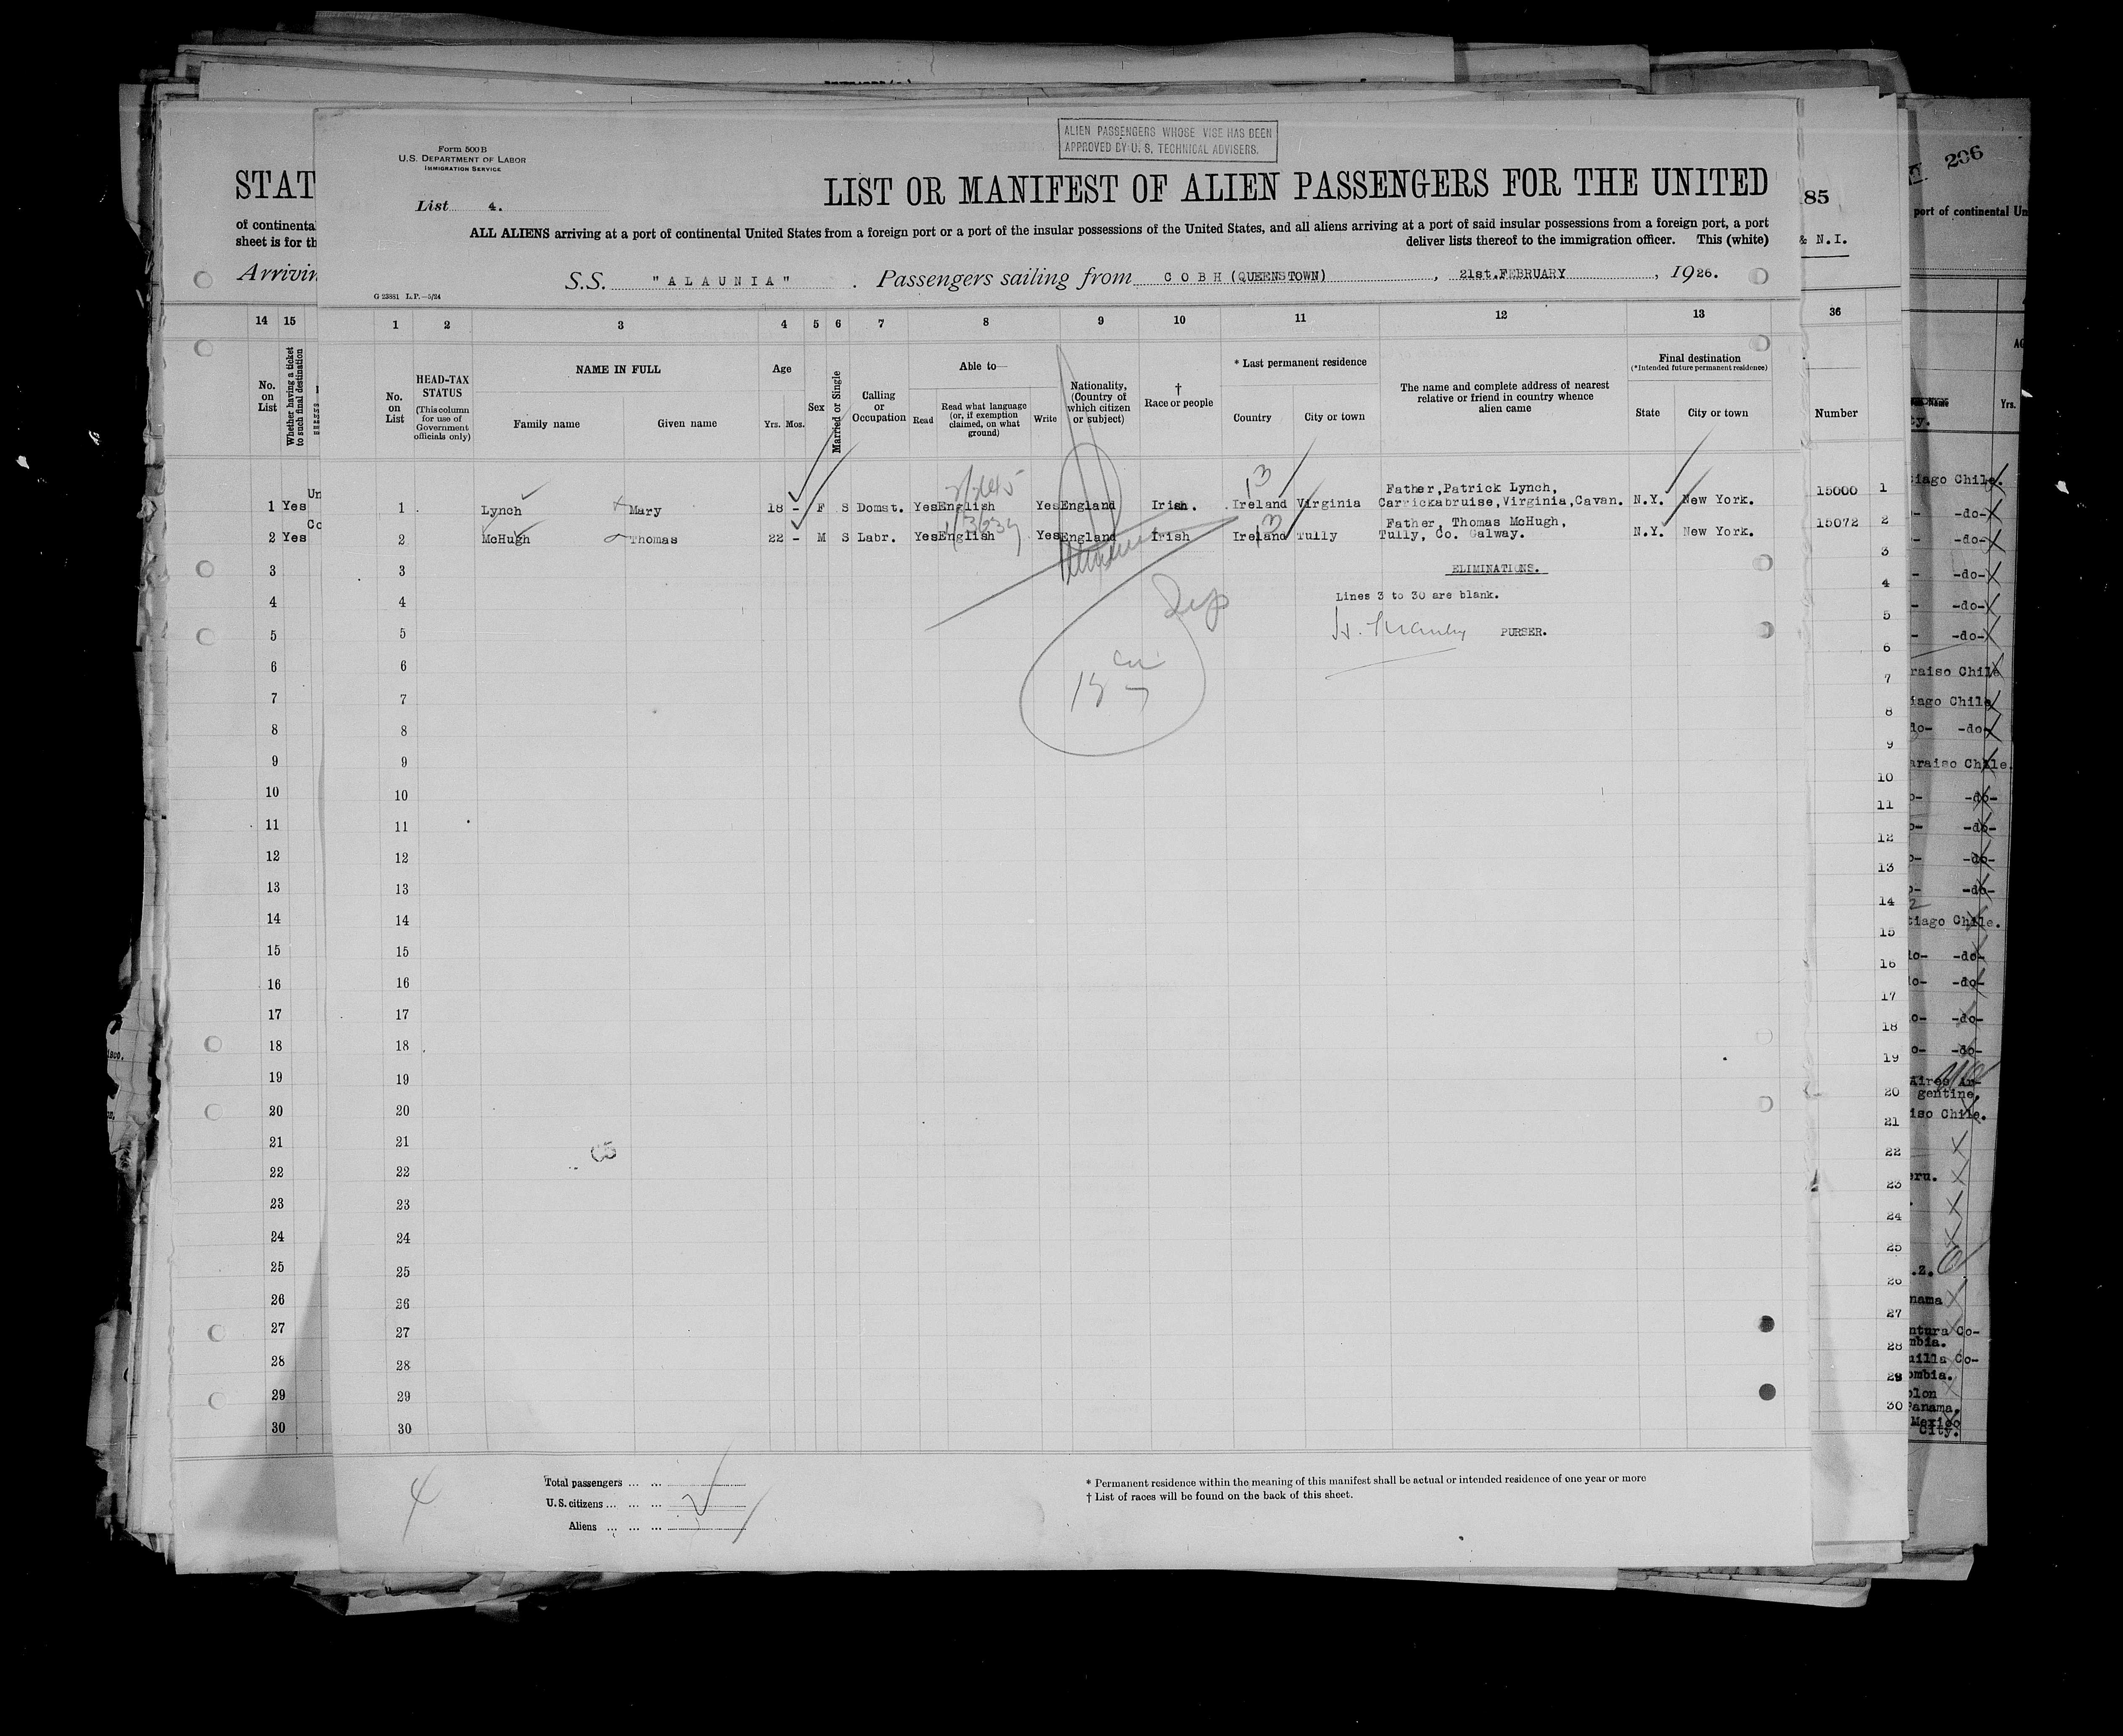 ALIEN PASSENGERS WHOSE VISE HAS BEEN
APPROVED BY U. S. TECHNICAL ADVISERS.
Form 500 B
U.S. DEPARTMENT OF LABOR
IMMIGRATION SERVICE
List 4.
LIST OR MANIFEST OF ALIEN PASSENGERS FOR THE UNITED
ALL ALIENS arriving at a port of continental United States from a foreign port or a port of the insular possessions of the United States, and all aliens arriving at a port of said insular possessions from a foreign port, a port
deliver lists thereof to the immigration officer. This (white)
S.S. "ALAUNIA". Passengers sailing from COBH (QUEENSTOWN), 21st.FEBRUARY, 1926.
G 23881 L.P.—5/24
1 2 3 4 5 6 7 8 9 10 11 12 13
No. on List
HEAD-TAX STATUS
(This column for use of Government officials only)
NAME IN FULL
Family name Given name
Age
Yrs. Mos.
Sex
Married or Single
Calling or Occupation
Able to—
Read
Read what language (or, if exemption claimed, on what ground)
Write
Nationality, (Country of which citizen or subject)
† Race or people
* Last permanent residence
Country City or town
The name and complete address of nearest relative or friend in country whence alien came
Final destination
(*Intended future permanent residence)
State City or town
1 Lynch Mary 18 - F S Domst. Yes English Yes England Irish. Ireland Virginia Father, Patrick Lynch, N.Y. New York.
Carrickabruise, Virginia, Cavan.
2 McHugh Thomas 22 - M S Labr. Yes English Yes England Irish Ireland Tully Father, Thomas McHugh, N.Y. New York.
Tully, Co. Galway.
3 ELIMINATIONS.
4 Lines 3 to 30 are blank.
5 PURSER.
6
7
8
9
10
11
12
13
14
15
16
17
18
19
20
21
22
23
24
25
26
27
28
29
30
4
Total passengers ... ...
U.S. citizens ... ... ... 2
Aliens ... ... ...
* Permanent residence within the meaning of this manifest shall be actual or intended residence of one year or more
† List of races will be found on the back of this sheet.
STAT
of continenta
sheet is for th
Arrivin
14 15
No. on List
Whether having a ticket to such final destination
1 Yes
2 Yes
3
4
5
6
7
8
9
10
11
12
13
14
15
16
17
18
19
20
21
22
23
24
25
26
27
28
29
30
85
& N.I.
36
Number
15000 1
15072 2
3
4
5
6
7
8
9
10
11
12
13
14
15
16
17
18
19
20
21
22
23
24
25
26
27
28
29
30
296
port of continental Un
Yrs.
iago Chile.
-do-
-do-
-do-
-do-
-do-
raiso Chile
iago Chile
-do-
araiso Chile.
-do-
-do-
-do-
-do-
tiago Chile.
-do-
-do-
-do-
-do-
Aires Ar-
gentine.
iso Chile.
eru.
.Z.
nama
ntura Co-
mbia.
uilla Co-
ombia.
olon
Panama.
Mexico
City.